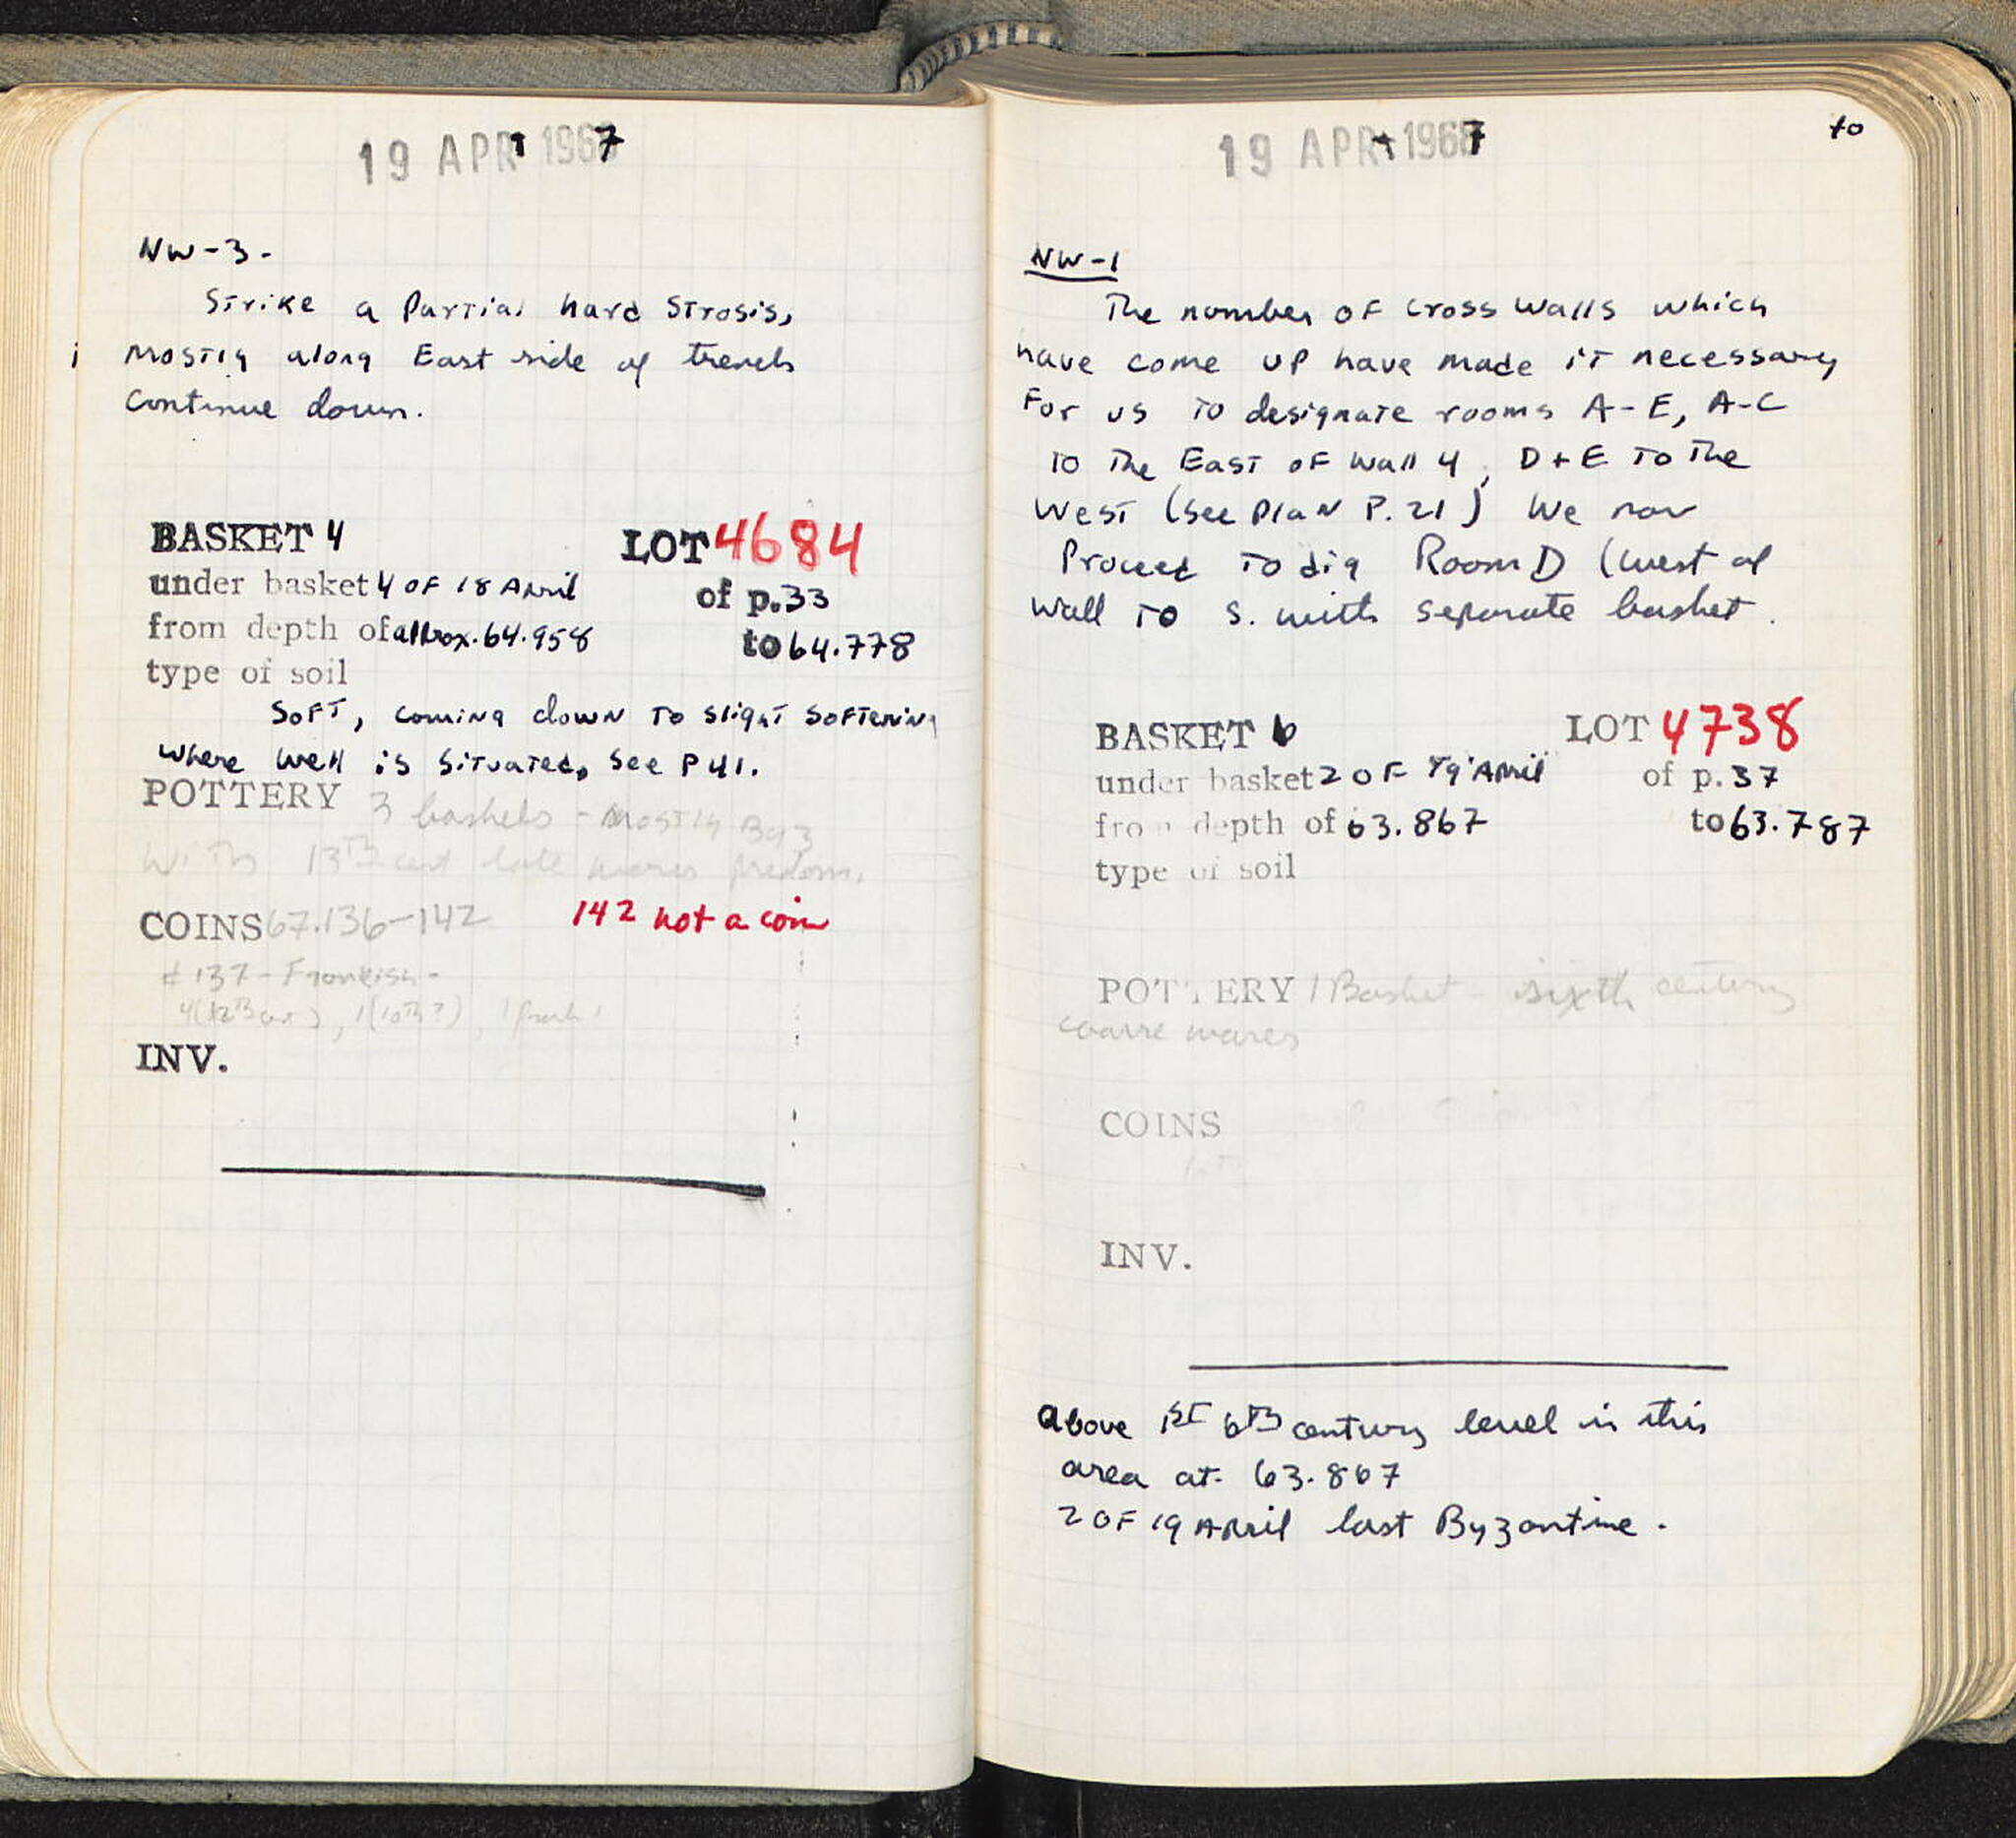 19 APR 1967
NW-3-
Strike a Partial hard Strosis,
mostly along East side of trench
Continue down.
BASKET 4 LOT 4684
under basket 4 OF 18 April of p. 33
from depth of approx. 64.958 to 64.778
type of soil
SOFT, coming down to slight softening
where well is situated, see P 41.
POTTERY 3 baskets - mostly Byz
with 13TH cent late wares predom.
COINS 67.136-142 142 not a coin
# 137 - Frankish -
4(12TH cent), 1(10TH?), 1
INV.
19 APR 1967
to
NW-1
The number OF cross walls which
have come up have made it necessary
For us to designate rooms A-E, A-C
to The East OF Wall 4, D+E to The
West (see Plan P. 21) We now
Proceed to dig Room D (west of
wall to S. with separate basket.
BASKET 6 LOT 4738
under basket 2 OF 19 April of p. 37
from depth of 63.867 to 63.787
type of soil
POTTERY 1 Basket - sixth century
coarse wares
COINS
INV.
Above 1ST 6TH century level in this
area at 63.867
2 OF 19 April last Byzantine.